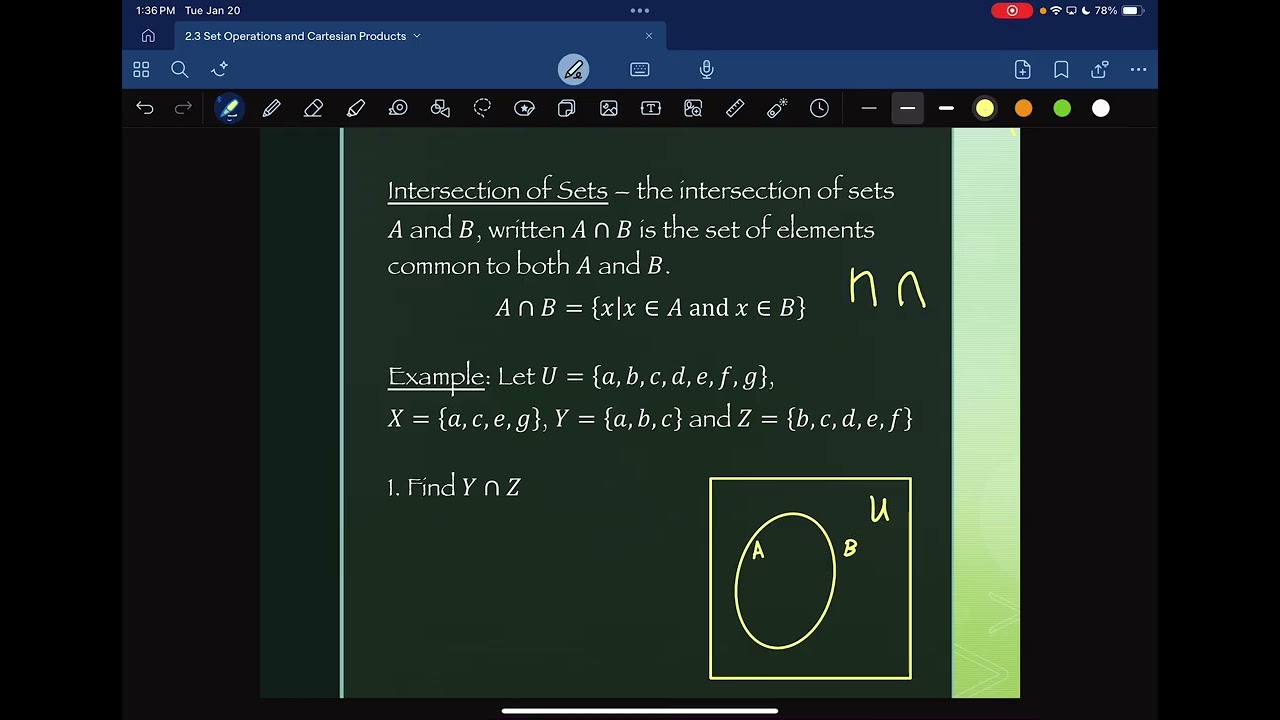 1:36 PM Tue Jan 20
78%
2.3 Set Operations and Cartesian Products
Intersection of Sets – the intersection of sets
A and B, written A ∩ B is the set of elements
common to both A and B.
∩ ∩
A ∩ B = {x|x ∈ A and x ∈ B}
Example: Let U = {a, b, c, d, e, f, g},
X = {a, c, e, g}, Y = {a, b, c} and Z = {b, c, d, e, f}
1. Find Y ∩ Z
U
A B